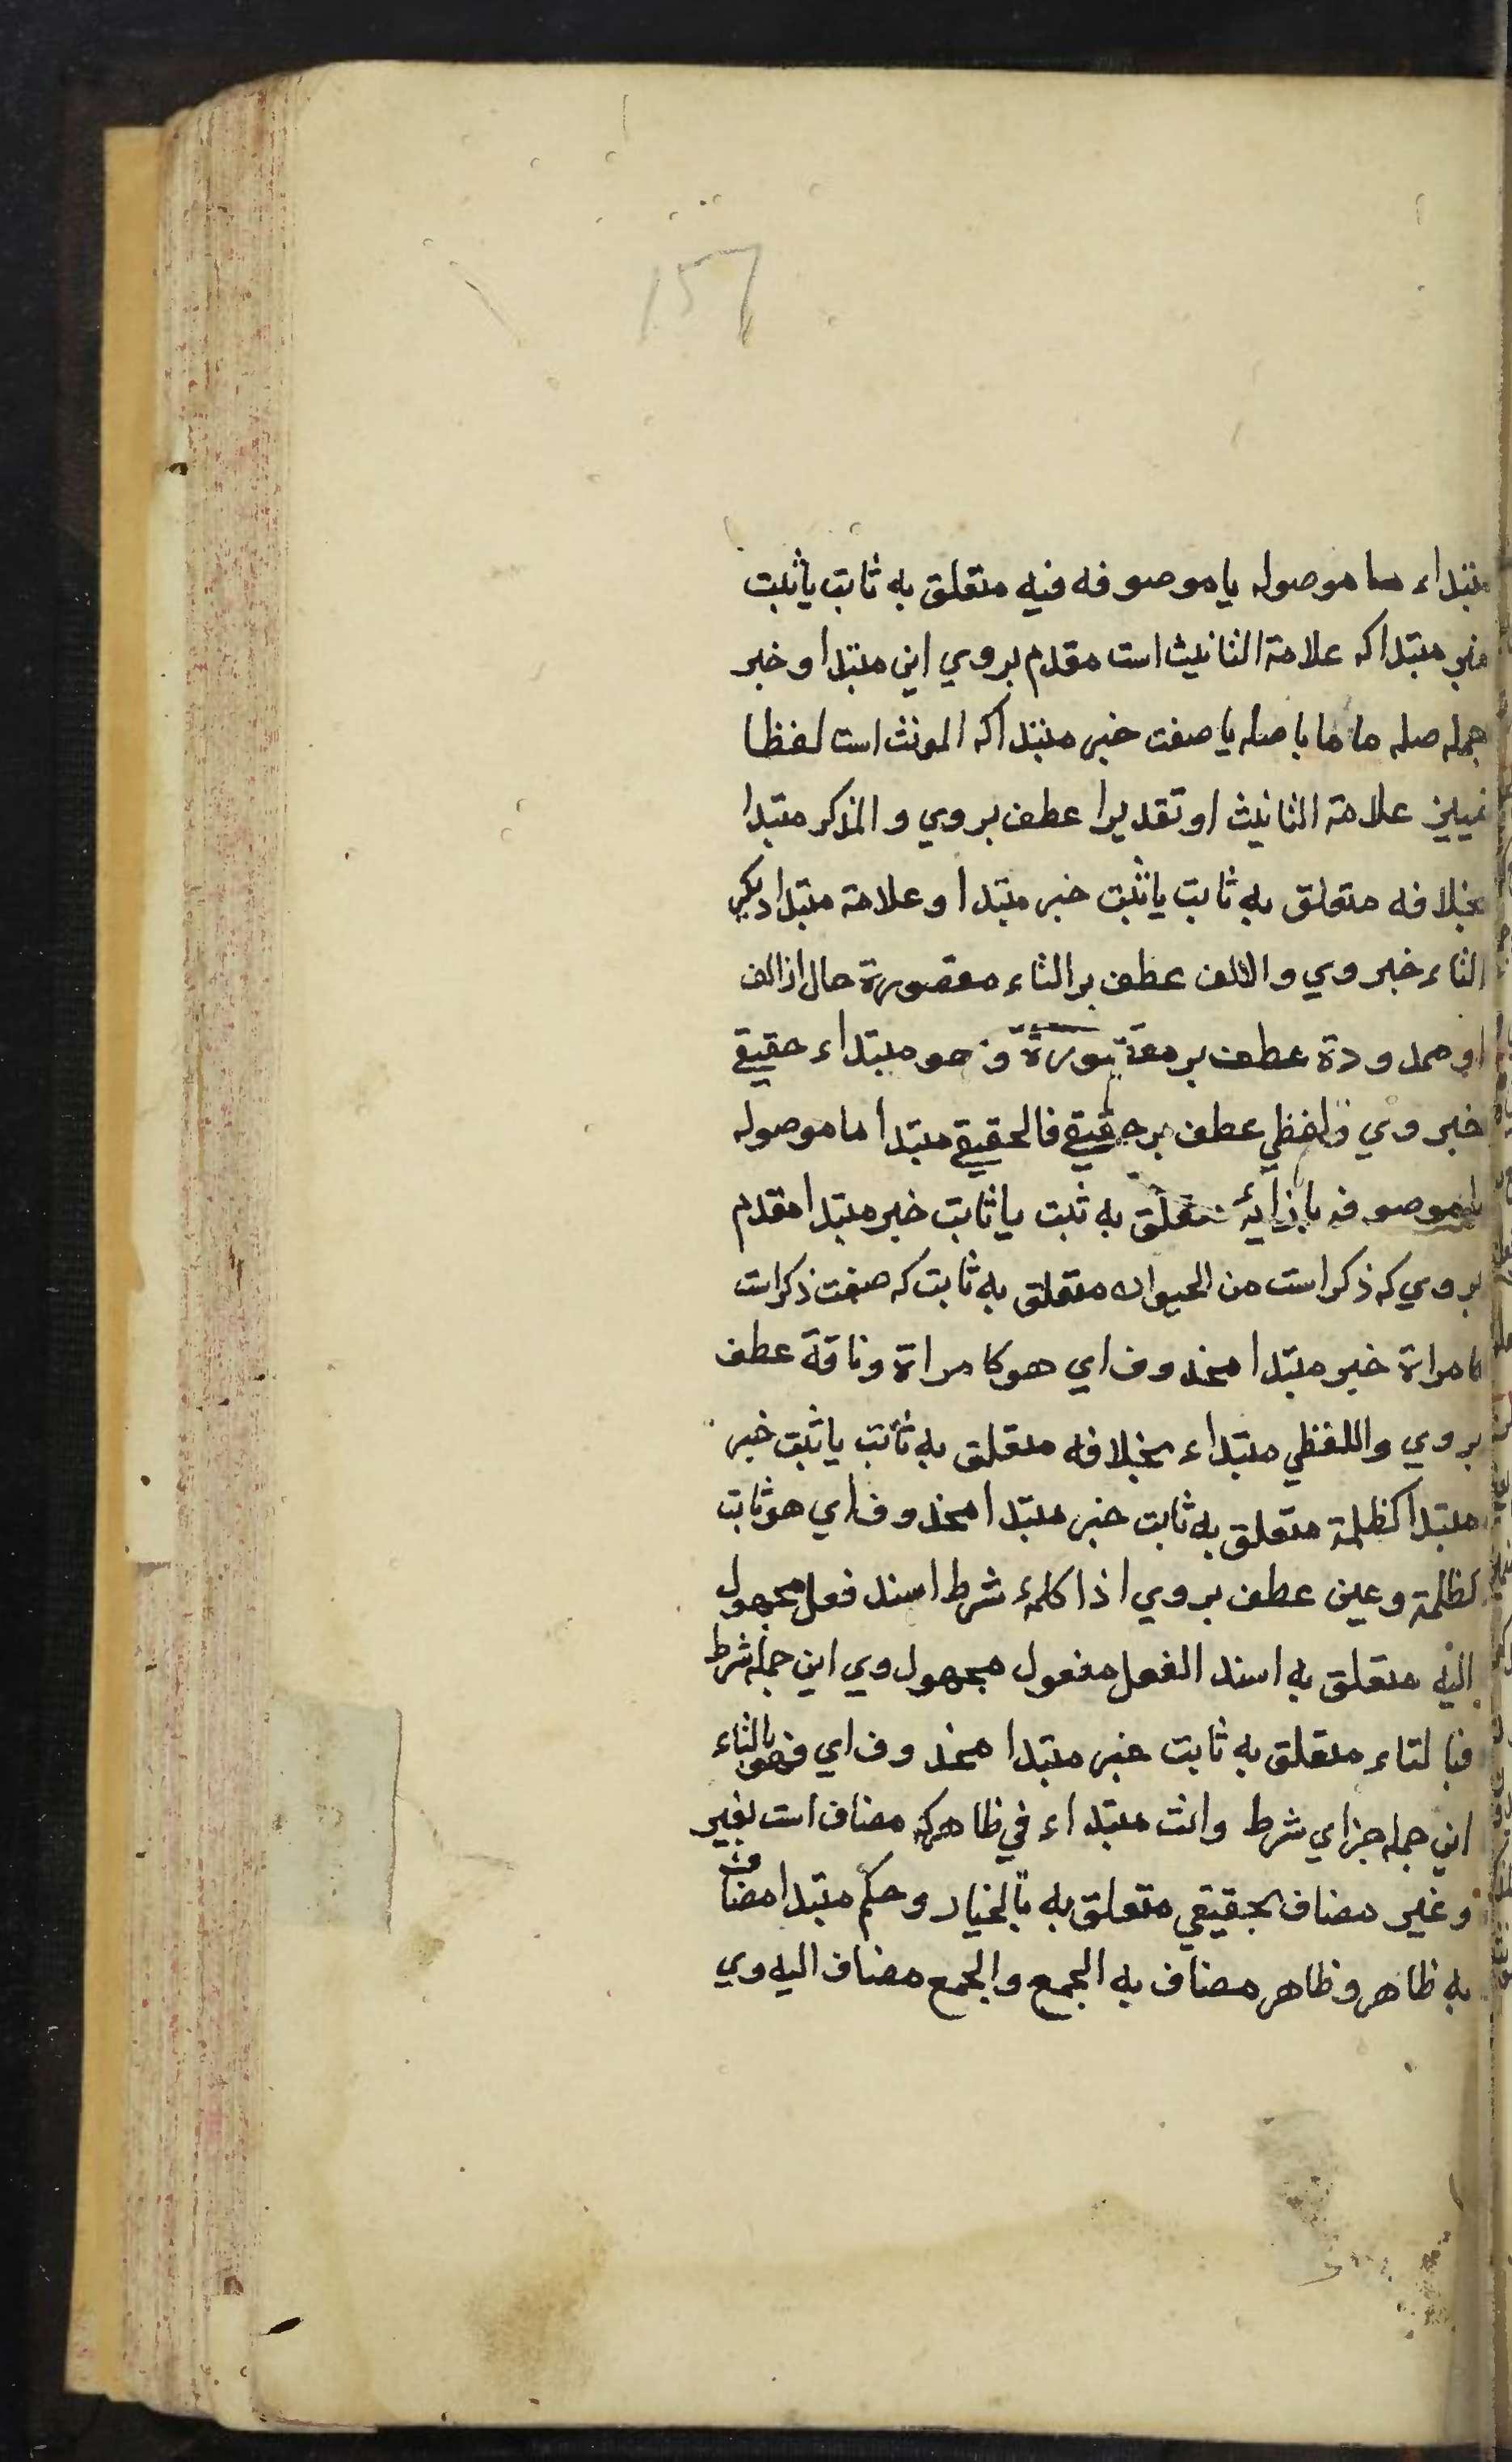 157
مبتداء ما موصوله يا موصوفه فيه متعلق به ثابت يا ثبت
خبر مبتدا كه علامة التانيث است مقدم بروي اين مبتدا و خبر
جمله صله ما ما با صله يا صفت خبر مبتدا كه المونث است لفظا
تمييز علامة التانيث او تقديرا عطف بروي و المذكر مبتدا
بخلافه متعلق به ثابت يا ثبت خبر مبتدا و علامة مبتدا ديكر
التاء خبر وي و الالف عطف بر التاء مقصورة حال از الف
او ممدودة عطف بر مقصورة و هو مبتداء حقيقي
خبر وي و لفظي عطف بر حقيقي فالحقيقي مبتدا ما موصوله
يا موصوفه بازائه متعلق به ثبت يا ثابت خبر مبتدا مقدم
بروي كه ذكر است من الحيوان متعلق به ثابت كه صفت ذكر است
كامراة خبر مبتدا محذوف اي هو كامراة و ناقة عطف
بروي و اللفظي مبتداء بخلافه متعلق به ثابت يا ثبت خبر
مبتدا كظلمة متعلق به ثابت خبر مبتدا محذوف اي هو ثابت
كظلمة و عين عطف بروي اذا كلمۀ شرط اسند فعل مجهول
اليه متعلق به اسند الفعل مفعول مجهول وي اين جمله شرط
فبالتاء متعلق به ثابت خبر مبتدا محذوف اي فهو بالتاء
اين جمله جزاي شرط و انت مبتداء في ظاهر كه مضاف است بغير
و غير مضاف بحقيقي متعلق به بالخيار و حكم مبتدا مضاف
به ظاهر و ظاهر مضاف به الجمع و الجمع مضاف اليه وي